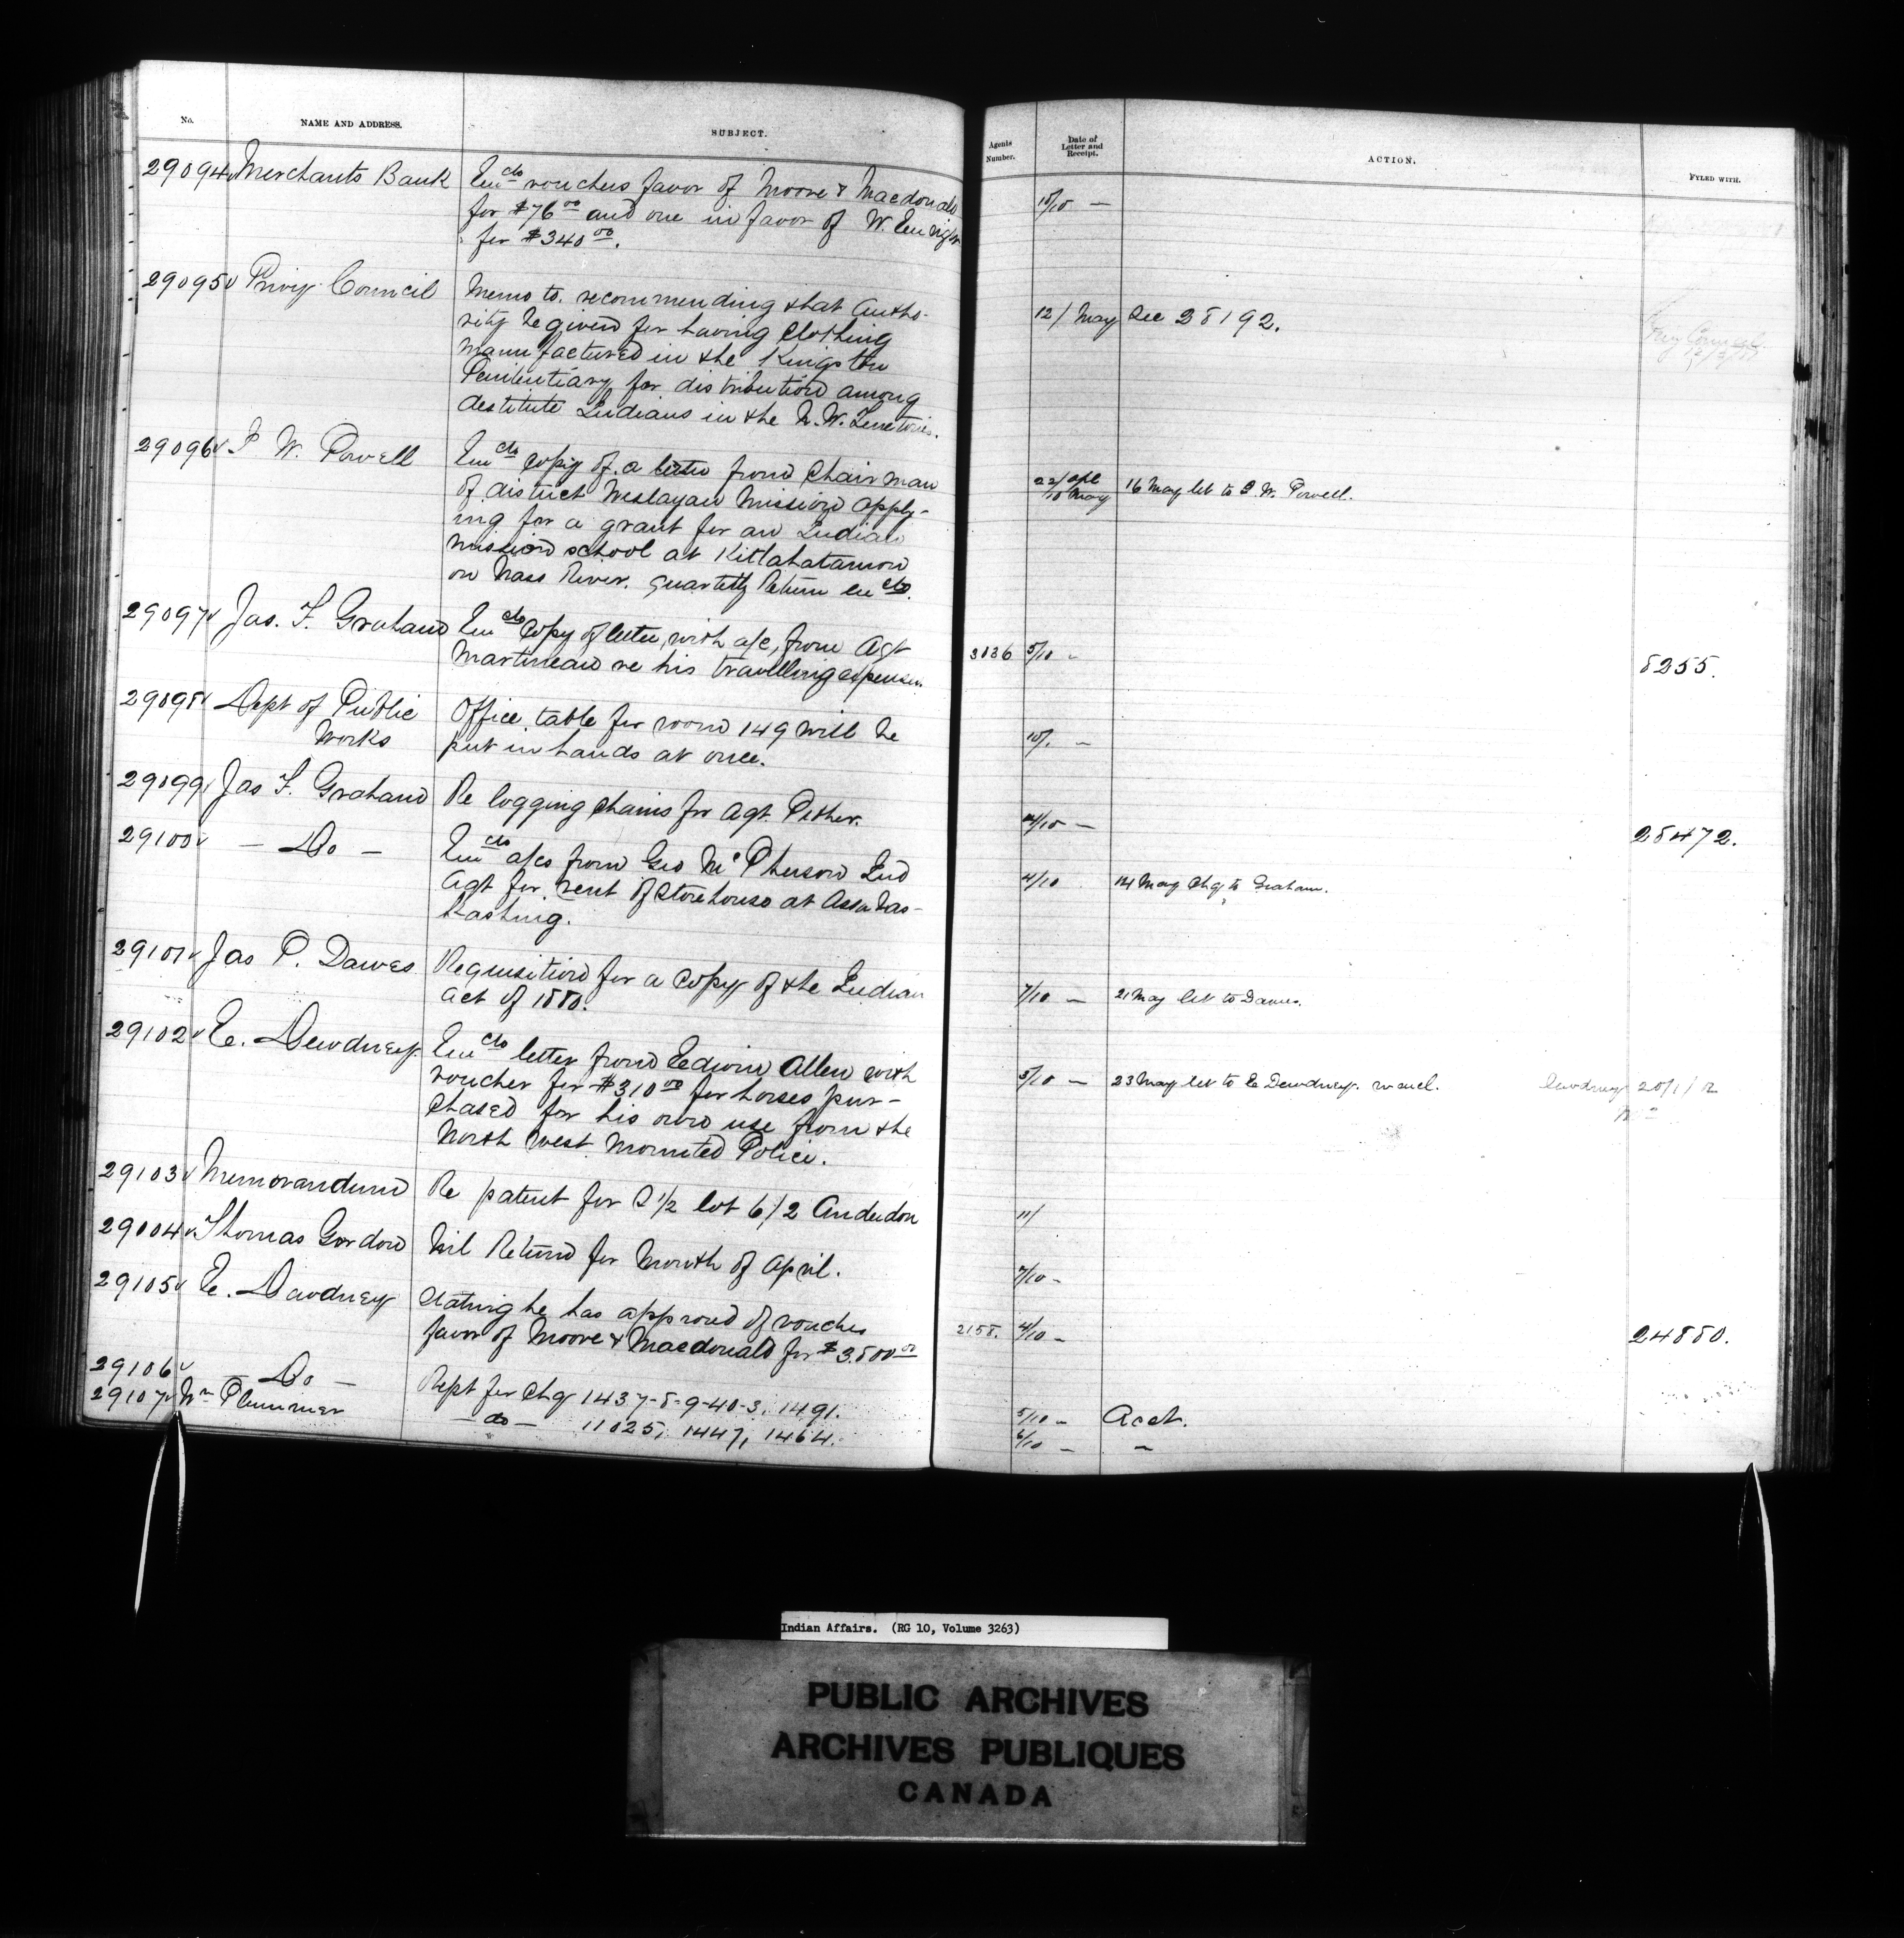 No.
NAME AND ADDRESS.
SUBJECT.
Agents Number.
Date of Letter and Receipt.
ACTION.
FYLED WITH.
29094 Merchants Bank
Enclo vouchers favor of Moore & Macdonald
for $76 00 and one in favor of W.
for $340 00.
10/10 —
29095 Privy Council
Memo to. recommending that Autho-
rity be given for having Clothing
manufactured in the Kingston
Penitentiary for distribution among
destitute Indians in the N. W. Territories.
12/ May See 28192.
29096 I W. Powell
Enclo copy of a letter from Chairman
of district Weslayan Mission apply-
ing for a grant for an Indian
mission school at Kitlahatamon
on Nass River. Quarterly Return enclo.
22/ Apl
10 May 16 May let to I. W. Powell.
29097 Jas. F. Graham
Enclo Copy of letter, with a/c, from Agt
Martineau re his travelling expenses.
3036 5/10 -
8255.
29098 Dept of Public
Works
Office table for room 149 will be
put in hands at once.
10/. —
29099 Jas F. Graham
Re logging chains for Agt. Pither.
4/10 —
28472.
29100 — Do —
Enclo a/cs from Geo McPherson Ind
Agt for rent of Storehouse at Assabas-
kashing.
4/10 14 May Chq to Graham.
29101 Jas P. Dawes
Requisition for a Copy of the Indian
Act of 1880.
7/10 — 21 May let to Dawes.
29102 E. Dewdney
Enclo letter from Edwin Allen with
voucher for $310 00 for horses pur-
chased for his own use from the
North West Mounted Police.
5/10 — 23 May let to E Dewdney.
Dewdney 20/1/12
29103 Memorandum
Re patent for S 1/2 lot 6/2 Anderdon
11/
29004 Thomas Gordon
Nil Return for Month of April.
7/10 -
29105 E. Dewdney
Stating he has approved of voucher
favor of Moore & Macdonald for $3.800 00
2158. 4/10 -
24880.
29106 — Do —
Rept for Chq 1437-8-9-40-3, 1491.
5/10 - Acct.
29107 Wm Plummer
— do — 11025, 1447, 1464.
6/10 — —
Indian Affairs. (RG 10, Volume 3263)
PUBLIC ARCHIVES
ARCHIVES PUBLIQUES
CANADA